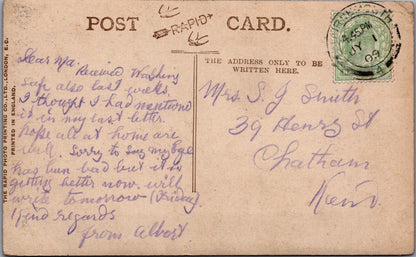 POST CARD.
RAPID
THE ADDRESS ONLY TO BE
WRITTEN HERE.
THE RAPID PHOTO PRINTING CO., LTD., LONDON, E.C.
PRINTED IN ENGLAND.
Dear Ma.
Received Washing
safe also last weeks.
I thought I had mentioned
it in my last letter.
hope all at home are
well. Sorry to say my
has been bad but it is
getting better now. will
write tomorrow (Friday)
Kind regards
from Albert
Mrs. S. J. Smith
39 Henry St
Chatham
Kent.
PM
JY 1
09